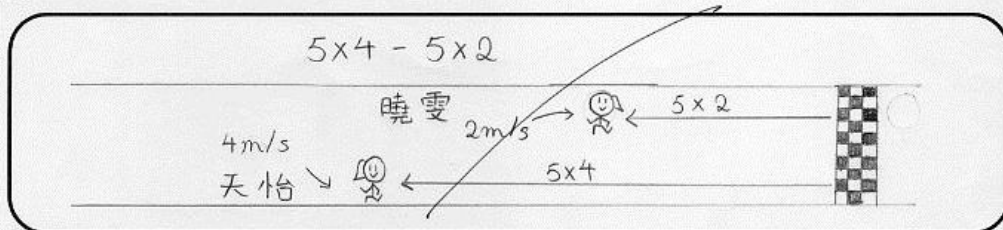 5×4 - 5×2
曉雯 2m/s 5×2
4m/s
天怡 5×4